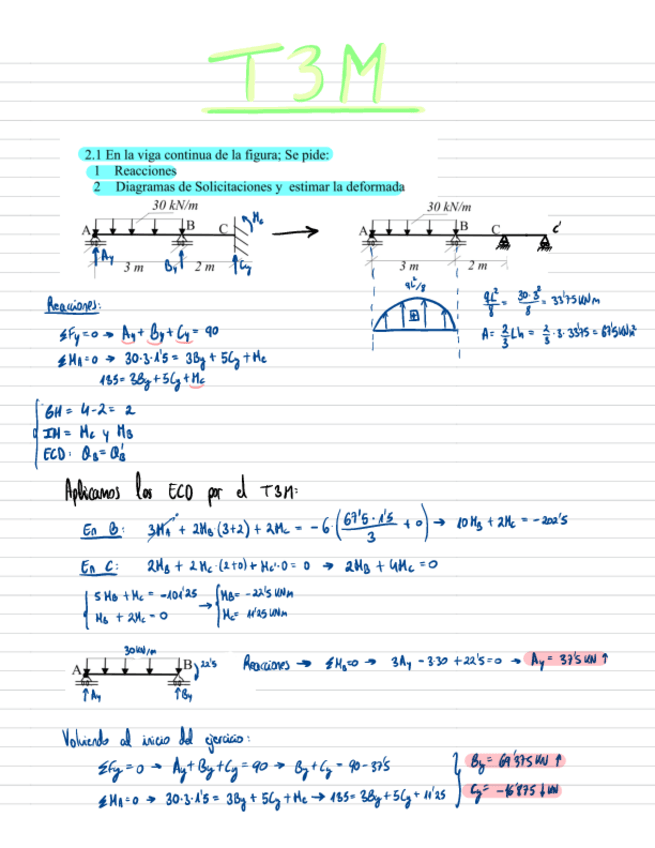 T3M
2.1 En la viga continua de la figura; Se pide:
1 Reacciones
2 Diagramas de Solicitaciones y estimar la deformada
30 kN/m
A B C Mc
Ay By Cy
3 m 2 m
30 kN/m
A B C C'
3 m 2 m
qL²/8
qL²/8 = 30·3²/8 = 33'75 kN m
A = 2/3 Lh = 2/3 · 3 · 33'75 = 67'5 kNm²
Reacciones:
ΣFy=0 → Ay + By + Cy = 90
ΣMA=0 → 30·3·1'5 = 3By + 5Cy + Mc
135 = 3By + 5Cy + Mc
GH = 4-2 = 2
IH = Mc y MB
ECD: θB = θB'
Aplicamos las ECD por el T3M:
En B: 3MA + 2MB (3+2) + 2Mc = -6 (67'5 · 1'5 / 3 + 0) → 10MB + 2Mc = -202'5
En C: 2MB + 2Mc · (2+0) + Mc'·0 = 0 → 2MB + 4Mc = 0
5MB + Mc = -101'25
MB + 2Mc = 0
→ MB = -22'5 kNm
Mc = 11'25 kNm
30 kN/m
A B 22'5
Ay By
Reacciones → ΣMB=0 → 3Ay - 3·30 + 22'5 = 0 → Ay = 37'5 kN ↑
Volviendo al inicio del ejercicio:
ΣFy = 0 → Ay + By + Cy = 90 → By + Cy = 90 - 37'5
ΣMA=0 → 30·3·1'5 = 3By + 5Cy + Mc → 135 = 3By + 5Cy + 11'25
By = 69'375 kN ↑
Cy = -16'875 ↓ kN